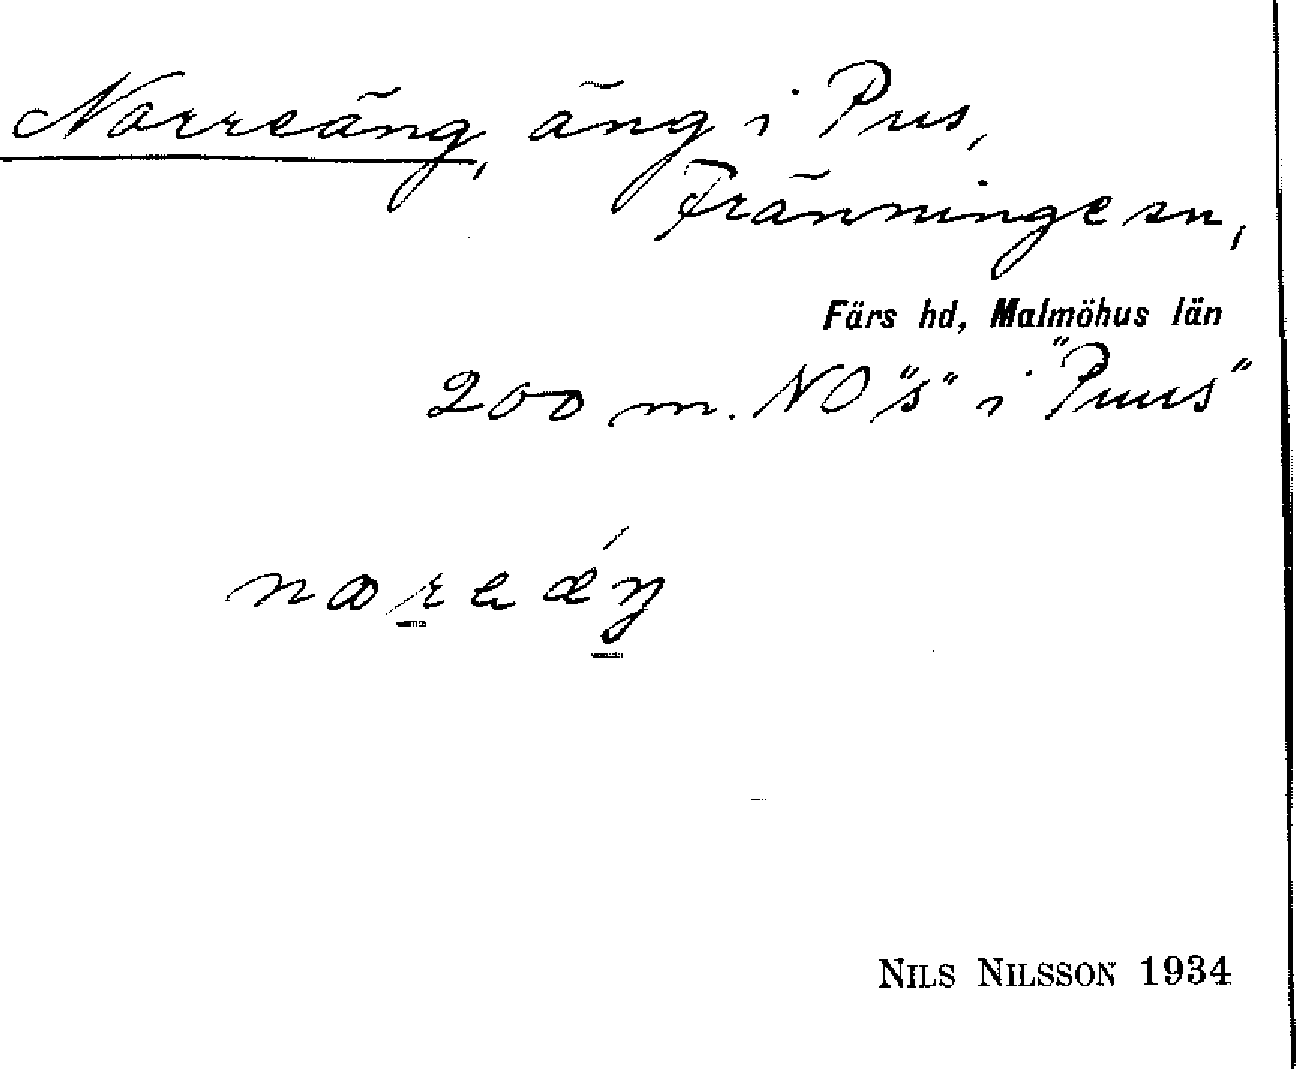 Norreäng, äng i Pus,
Fränninge sn,
Färs hd, Malmöhus län
200 m. NO "s" i "Puus"
nareǽŋ
NILS NILSSON 1934